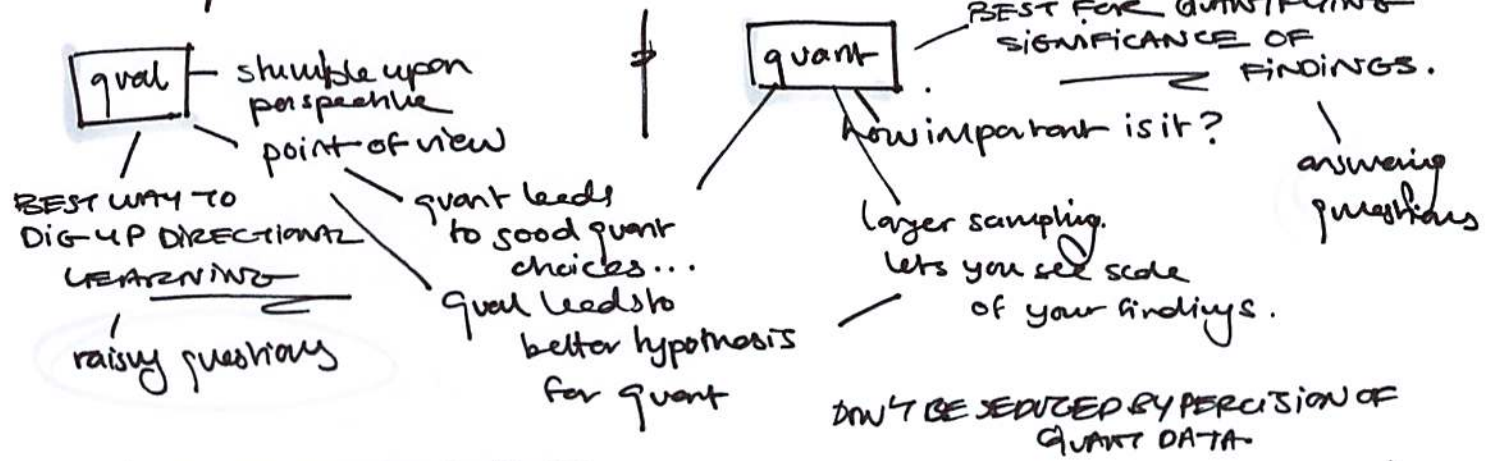 qual
stumble upon
perspective
point of view
BEST WAY TO
DIG UP DIRECTIONAL
LEARNING
raising questions
quant leads
to good quant
choices...
qual leads to
better hypothesis
for quant
quant
BEST FOR QUANTIFYING
SIGNIFICANCE OF
FINDINGS.
how important is it?
answering
questions
larger sampling.
lets you see scale
of your findings.
DON'T BE SEDUCED BY PERCISION OF
QUANT DATA.